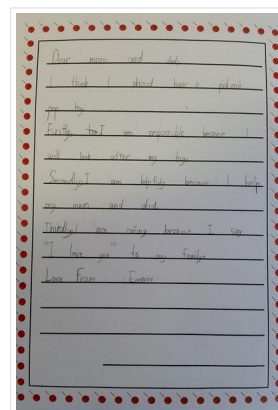 Dear mum and dad,
I think I shoud have a
pop toy
Firstly, I am reponsible because I
will look after my toys.
Secondly, I am helpfuly because I help
my mum and dad.
Thirdly, I am caring because I say
"I love you" to my family.
Love From